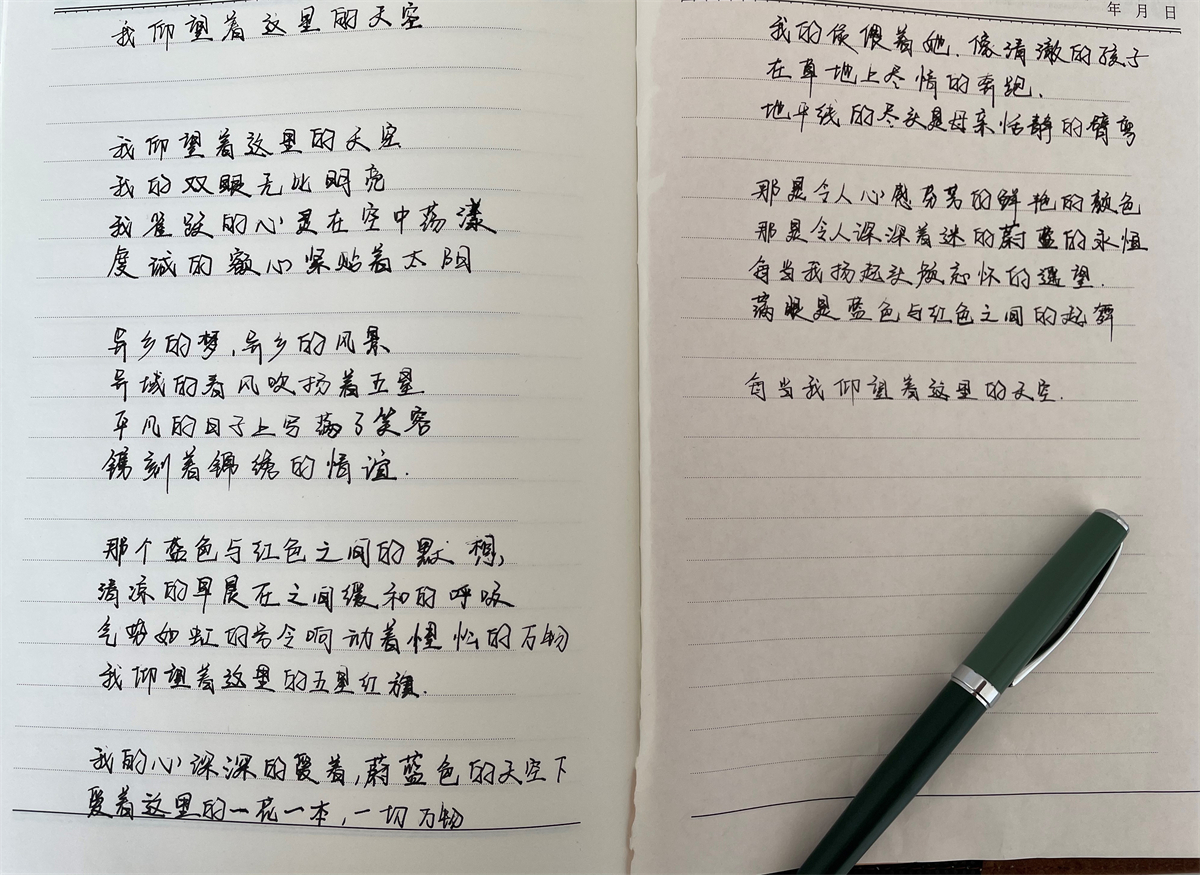 我仰望着这里的天空
我仰望着这里的天空
我的双眼无比明亮
我雀跃的心灵在空中荡漾
虔诚的额心紧贴着太阳
异乡的梦,异乡的风景
异域的春风吹扬着五星
平凡的日子上写满了笑容
镌刻着锦绣的情谊.
那个蓝色与红色之间的默想,
清凉的早晨在之间缓和的呼吸
气势如虹的号令响动着惺忪的万物
我仰望着这里的五星红旗.
我的心深深的爱着,蔚蓝色的天空下
爱着这里的一花一本,一切万物
年 月 日
我的依偎着她.像清澈的孩子
在草地上尽情的奔跑.
地平线的尽头是母亲恬静的臂弯
那是令人心慰芬芳的鲜艳的颜色
那是令人深深着迷的蔚蓝的永恒
每当我扬起头敞怀的遥望.
满眼是蓝色与红色之间的起舞
每当我仰望着这里的天空.